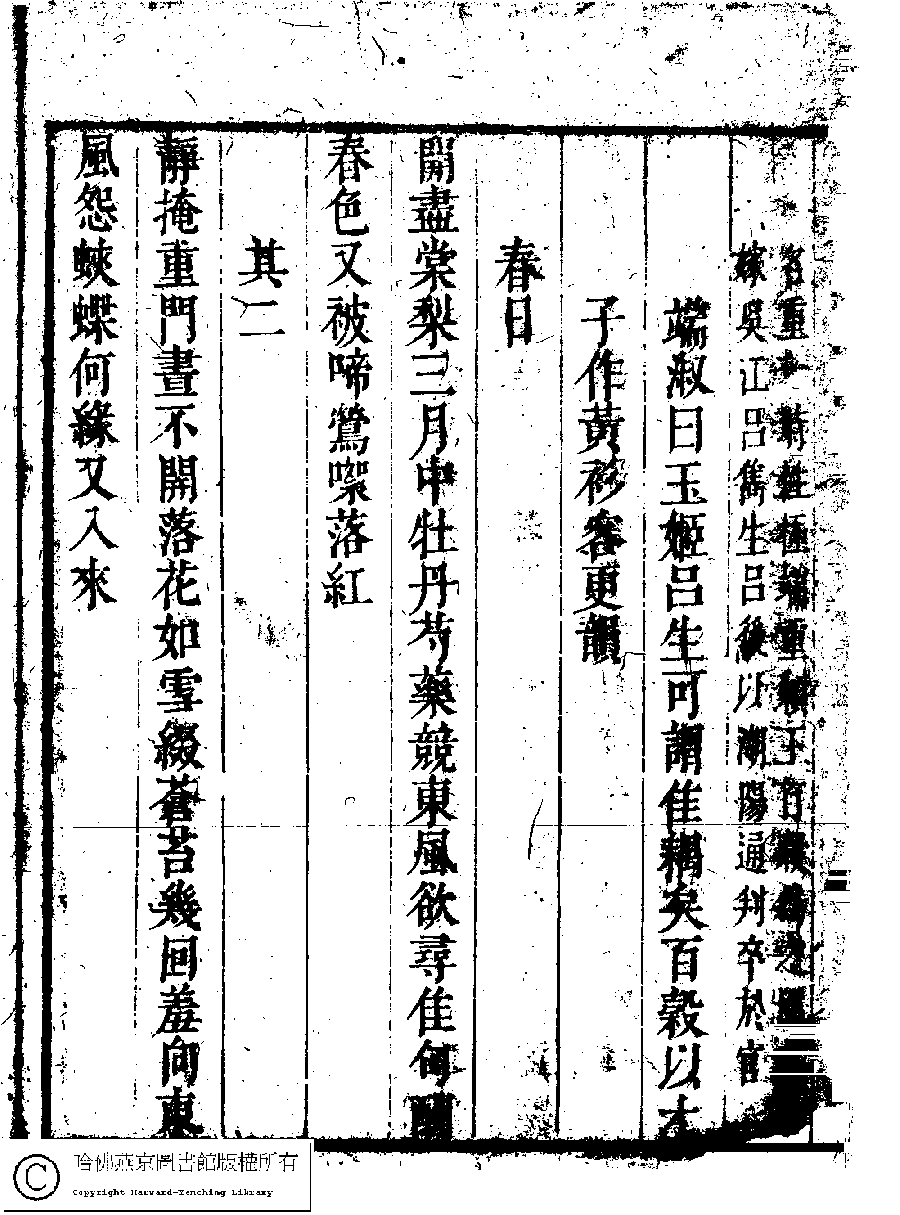 名重一時性極端重賴王百穀為之
嫁吳江呂雋生呂後以潮陽通判卒於官
端淑曰玉姬呂生可謂佳耦矣百穀以才
子作黃衫客更韻
春日
開盡棠梨三月中牡丹芍藥競東風欲尋佳句
春色又被啼鶯喋落紅
其二
靜掩重門晝不開落花如雪綴蒼苔幾回羞向東
風怨蛺蝶何緣又入來
哈佛燕京圖書館版權所有
Copyright Harvard-Yenching Library